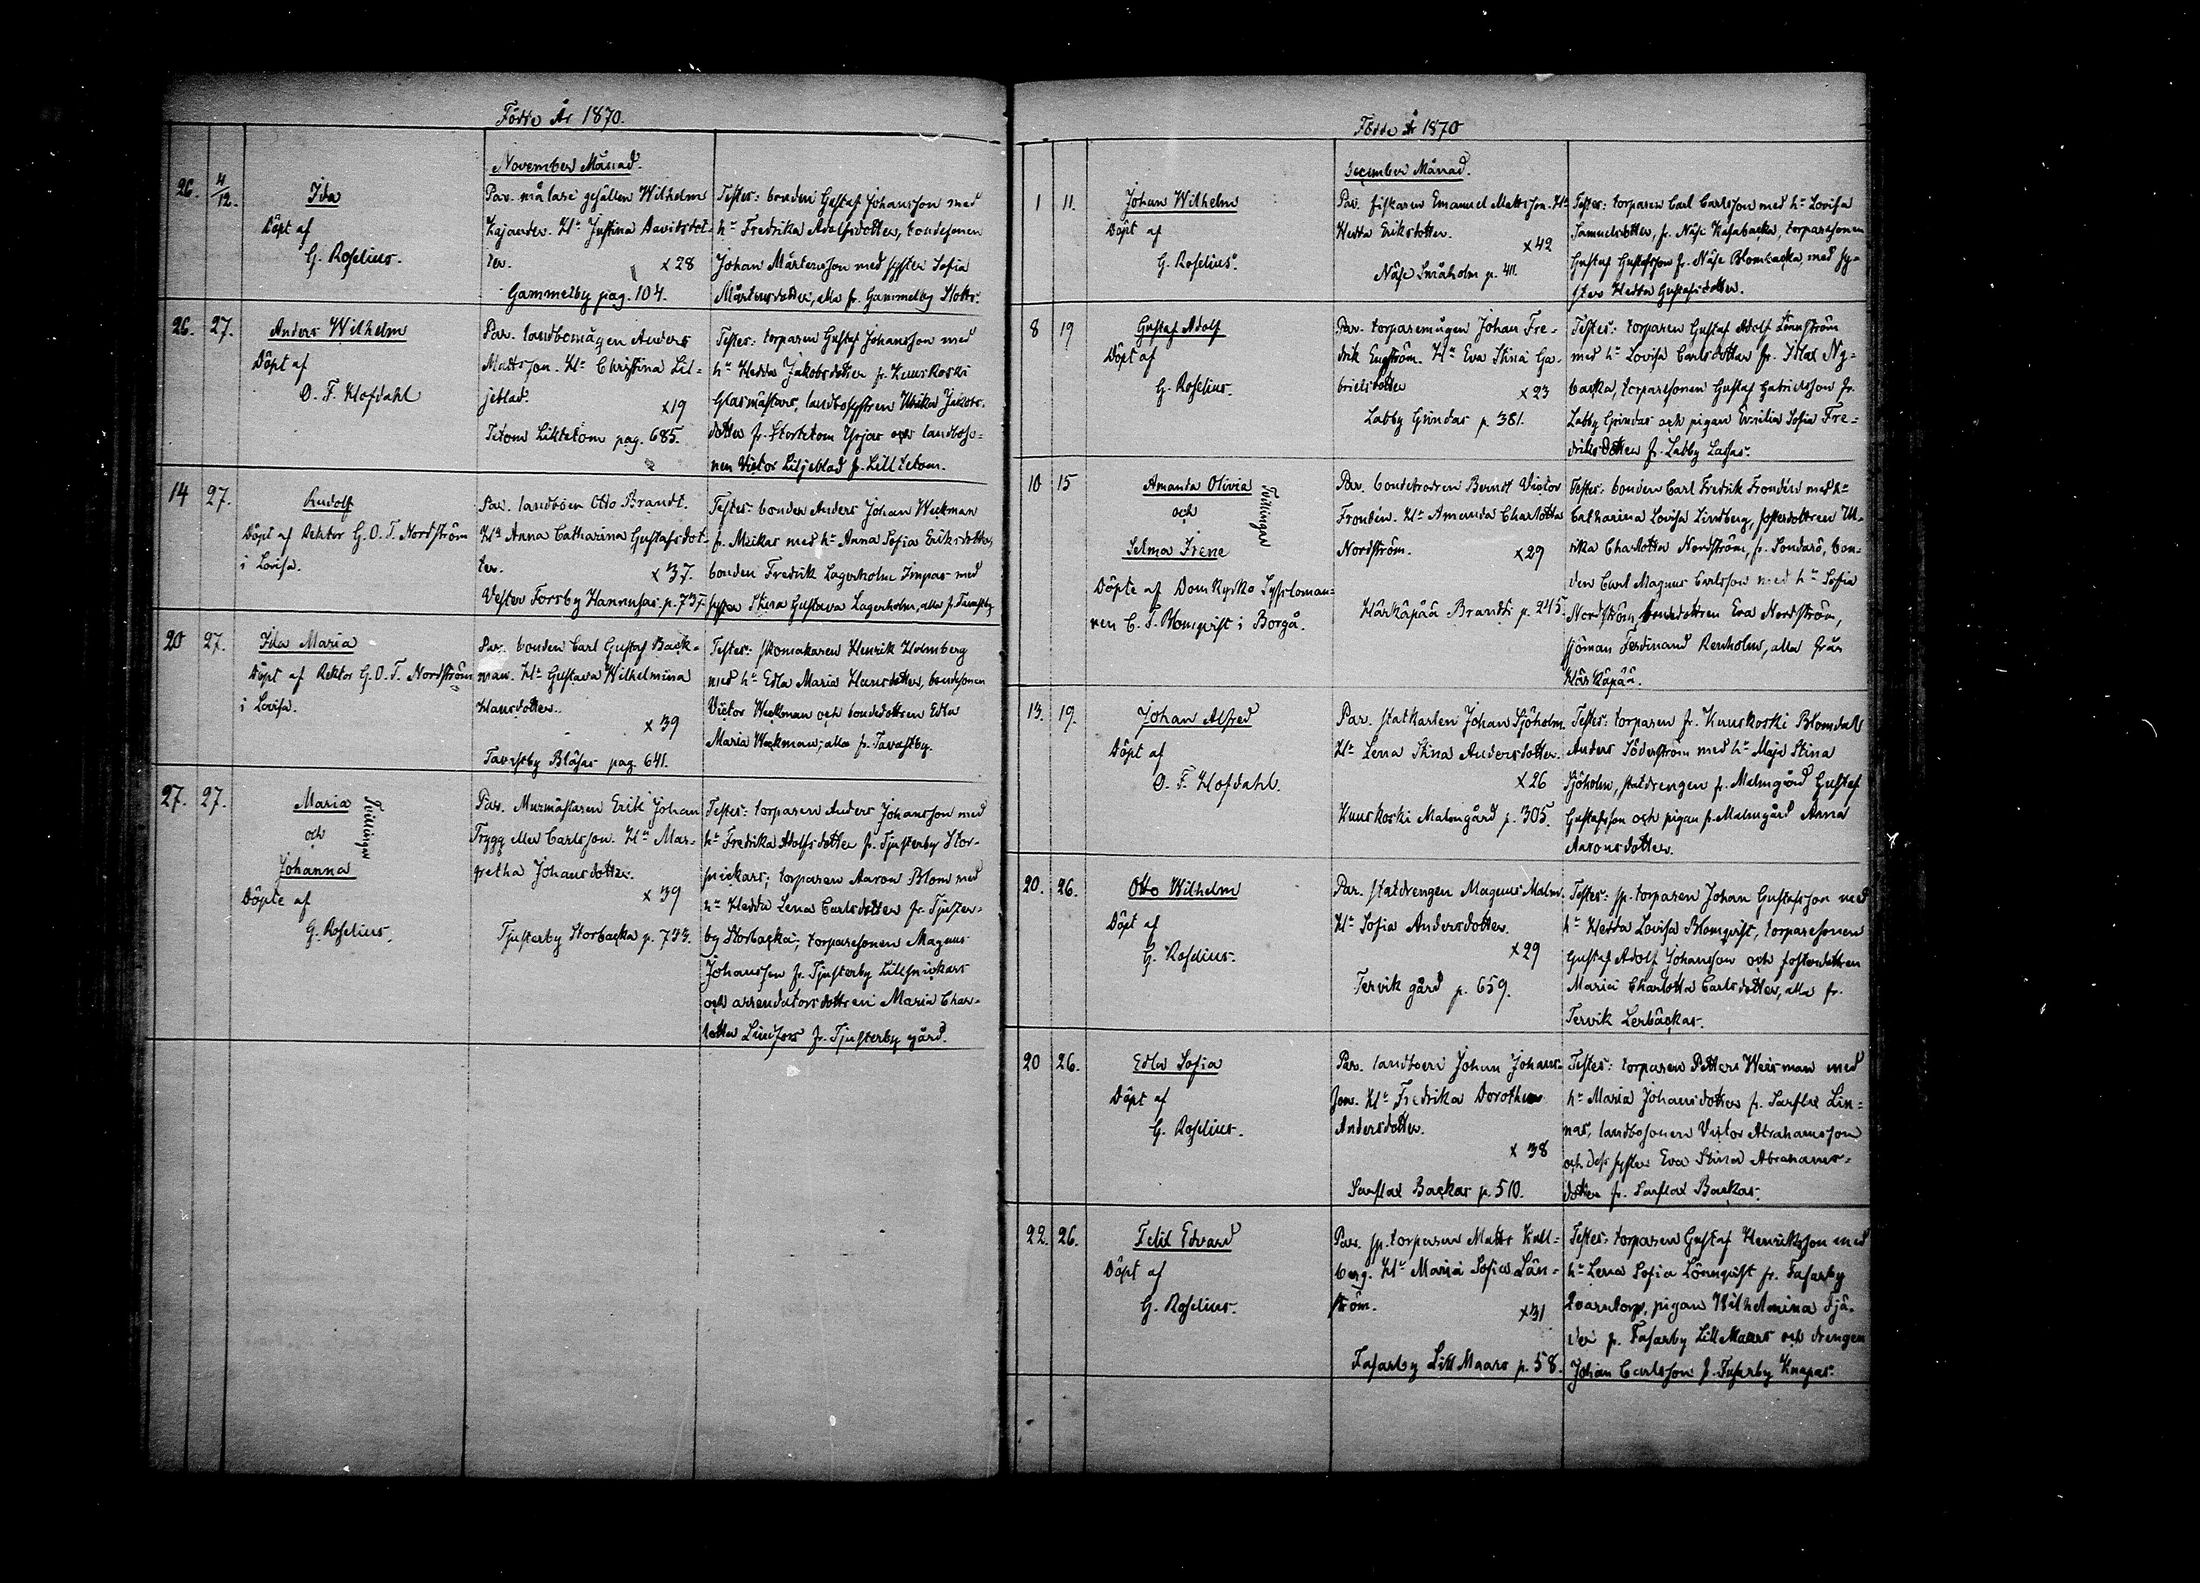 Födde År 1870.
November Månad.
26. 4/12. Ida
Döpt af
G. Roselius.
Par. målare gesällen Wilhelm
Kajander. H:u Justina Davidsdot-
ter. x 28
Gammelby pag. 104.
Testes: bonden Gustaf Johansson med
h:u Fredrika Adolfsdotter, bondesonen
Johan Mårtensson med syster Sofia
Mårtensdotter, alla fr. Gammelby
26. 27. Anders Wilhelm
Döpt af
O. F. Hofdahl
Par. landbomågen Anders
Mattsson. H:u Christina Lil-
jeblad. x 19
Tetom Lilltetom pag. 685.
Testes: torparen Gustaf Johansson med
h:u Hedda Jakobsdotter fr. Kuuskoski
Glasmästars, landbosystren Ulrika Jakobs-
dotter fr. Stortetom Yrjas och landboso-
nen Victor Liljeblad fr. Lilltetom.
14 27. Rudolf
Döpt af Rektor G. O. T. Nordström
i Lovisa.
Par. landboen Otto Brandt.
H:u Anna Catharina Gustafsdot-
ter. x 37.
Vester Forsby Hannusas p. 737.
Testes: bonden Anders Johan Weckman
fr. Mickas med h:u Anna Sofia Eriksdotter,
bonden Fredrik Lagerholm Impas med
syster Stina Gustava Lagerholm, alla fr. Tavastby
20 27. Ida Maria
Döpt af Rektor G. O. T. Nordström
i Lovisa.
Par. bonden Carl Gustaf Back-
man. H:u Gustava Wilhelmina
Hansdotter.
x 39
Tavastby Bläsas pag. 641.
Testes: skomakaren Henrik Holmberg
med h:u Edla Maria Hansdotter, bondesonen
Victor Weckman och bondedottren Edla
Maria Weckman, alla fr. Tavastby.
27. 27. Maria
och
Johanna
Tvillingar
Döpte af
G. Roselius.
Par. Murmästaren Erik Johan
Trygg eller Carlsson. H:u Mar-
gretha Johansdotter.
x 39
Tjusterby Storbacka p. 733.
Testes: torparen Anders Johansson med
h:u Fredrika Adolfsdotter fr. Tjusterby Stor-
snickars; torparen Aaron Blom med
h:u Hedda Lena Carlsdotter fr. Tjuster-
by Storbacka; torparesonen Magnus
Johansson fr. Tjusterby Lillsnickars
och arrendatorsdottren Maria Char-
lotta Lindfors fr. Tjusterby gård.
Födde År 1870
December Månad.
1 11. Johan Wilhelm
Döpt af
G. Roselius.
Par. fiskaren Emanuel Mattsson. H:u
Hedda Eriksdotter.
x 42
Näse Småholm p. 411.
Testes: torparen Carl Carlsson med h:u Lovisa
Samuelsdotter, fr. Näse Kasabacka, torparesonen
Gustaf Gustafsson fr. Näse Blombacka, med sy-
ster Hedda Gustafsdotter.
8 19 Gustaf Adolf
Döpt af
G. Roselius.
Par. torparemågen Johan Fre-
drik Engström. H:u Eva Stina Ga-
brielsdotter x 23
Labby Grindas p. 381.
Testes: torparen Gustaf Adolf Lönnström
med h:u Lovisa Carlsdotter fr. Ny-
backa, torparesonen Gustaf Gabrielsson fr.
Labby Grindas och pigan Emilia Sofia Fre-
driksdotter fr. Labby Lassas.
10 15 Amanda Olivia
och
Selma Irene
Tvillingar
Döpte af Domkyrko Sysslomän-
nen C. F. Blomqvist i Borgå.
Par. bondebrodren Berndt Victor
Frondén. H:u Amanda Charlotta
Nordström. x 29
Härkäpää Brandts p. 245.
Testes: bonden Carl Fredrik Frondén med h:u
Catharina Lovisa Lindberg, fosterdottren Ul-
rika Charlotta Nordström, fr. Sondarö, bon-
den Carl Magnus Carlsson med h:u Sofia
Nordström, bondedottren Eva Nordström,
sjöman Ferdinand Renholm, alla från
Härkäpää.
13. 19. Johan Alfred
Döpt af
O. F. Hofdahl.
Par. statkarlen Johan Sjöholm.
H:u Lena Stina Andersdotter.
x 26
Kuuskoski Malmgård p. 305.
Testes: torparen fr. Kuuskoski Blomdal
Anders Söderström med h:u Maja Stina
Sjöholm, statdrengen fr. Malmgård Gustaf
Gustafsson och pigan fr. Malmgård Anna
Aaronsdotter.
20. 26. Otto Wilhelm
Döpt af
G. Roselius.
Par. statdrengen Magnus Malm.
H:u Sofia Andersdotter.
x 29
Tervik gård p. 659.
Testes: sp. torparen Johan Gustafsson med
h:u Hedda Lovisa Blomqvist, torparesonen
Gustaf Adolf Johansson och fosterdottren
Maria Charlotta Carlsdotter, alla fr.
Tervik Lerbäckas.
20 26. Edla Sofia
Döpt af
G. Roselius.
Par. landboen Johan Johans-
son. H:u Fredrika Dorothea
Andersdotter.
x 38
Sarflax Backas p. 510.
Testes: torparen Petter Weisman med
h:u Maria Johansdotter fr. Sarflax Lin-
nas, landbosonen Victor Abrahamsson
och dess syster Eva Stina Abrahams-
dotter fr. Sarflax Backas.
22. 26. Felix Edvard
Döpt af
G. Roselius.
Par. sp. torparen Matts Kull-
berg. H:u Maria Sofia Län-
ström. x 31
Fasarby Lill Maars p. 58.
Testes: torparen Gustaf Henriksson med
h:u Lena Sofia Lönnqvist fr. Fasarby
Qvarntorp, pigan Wilhelmina Fjä-
der fr. Fasarby Lill Maars och drengen
Johan Carlsson fr. Fasarby Knapas.